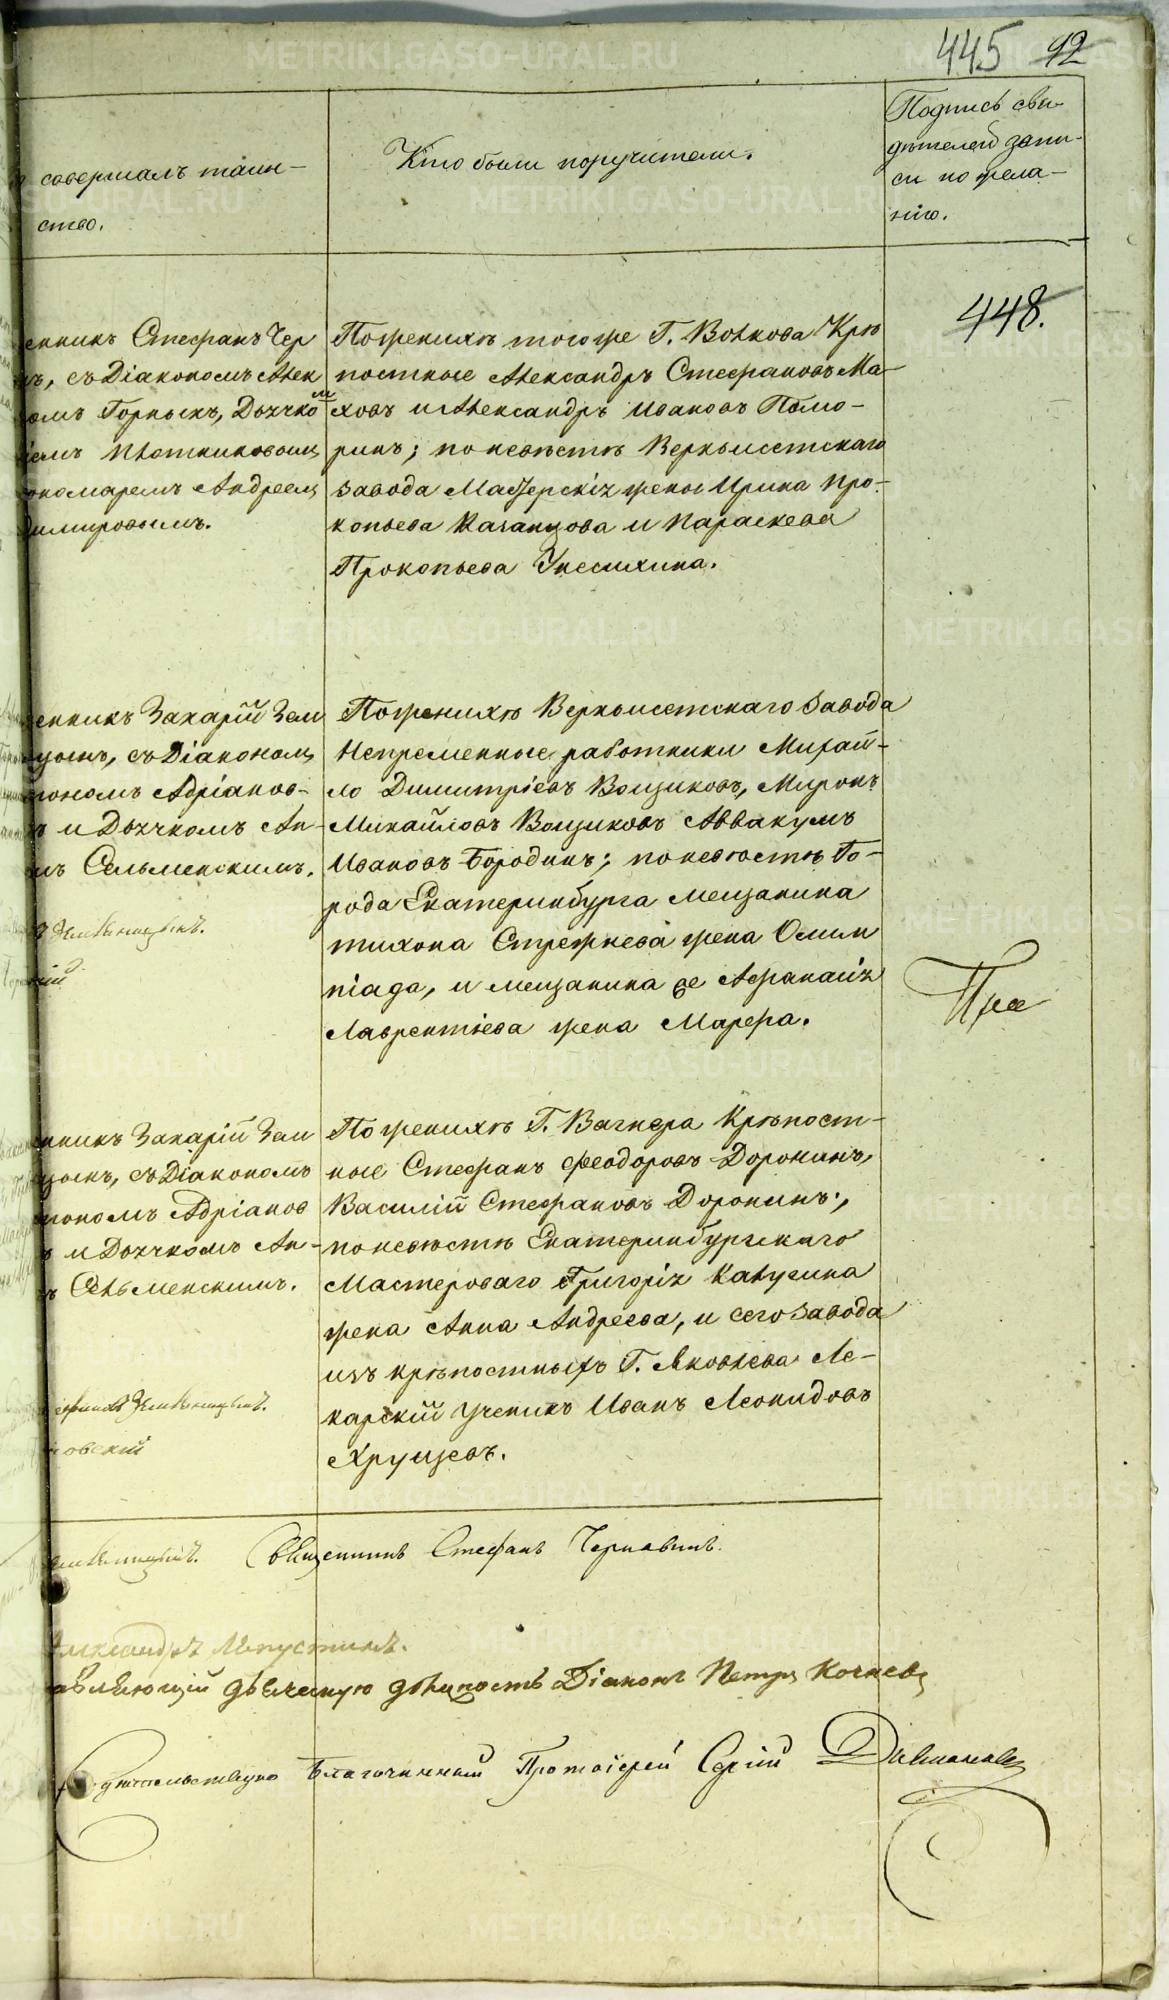 445 92
совершалъ таин-
ство.
Кто были поручители.
Подпись сви-
дѣтелей запи-
си по жела-
нію.
448.
енникъ Стефанъ Чер
съ Діакономъ Алек
омъ Горныхъ, Дьячком
Плотниковымъ
ономаремъ Андреемъ
димировымъ.
По женихѣ того же Г. Волкова Крѣ
постные Александръ Стефановъ Ма-
ховъ и Александръ Ивановъ Помо-
ринъ; по невѣстѣ Верхъисетскаго
завода Мастерскія жены Ирина Про-
копьева Казанцова и Параскева
Прокопьева
енникъ Захарій Зем
цынъ, съ Діакономъ
тономъ Адріанов-
и Дьячкомъ Ан-
Сельменскимъ.
По женихѣ Верхъисетскаго завода
Непременные работники Михай-
ло Димитріевъ Вощиковъ, Миронъ
Михайловъ Вощиковъ Аввакумъ
Ивановъ Бородинъ; по невѣстѣ Го-
рода Екатеринбурга мещанина
тихона Стрежнева жена Олим
піада, и мещанина же Афанасія
Лаврентіева жена Марфа.
При
нникъ Захарій Зем
цынъ, съ Діакономъ
тономъ Адріанов
и Дьячкомъ Ан-
Сельменскимъ.
овскій
По женихѣ Г. Вагнера Крѣпост-
ные Стефанъ Феодоровъ Доронинъ,
Василій Стефановъ Доронинъ;
по невѣстѣ Екатеринбургскаго
Мастероваго Григорія Калугина
жена Анна Андреева, и сего завода
изъ крѣпостныхъ Г. Яковлева Ле-
карскій ученикъ Иванъ Леонидовъ
Хрущевъ.
Священникъ Стефанъ Чернавинъ.
Александръ Лапустинъ.
авляющій дьяческую должность Діаконъ Петръ Кочневъ
Свидѣтельствую Благочинный Протоіерей Сергій
METRIKI.GASO-URAL.RU